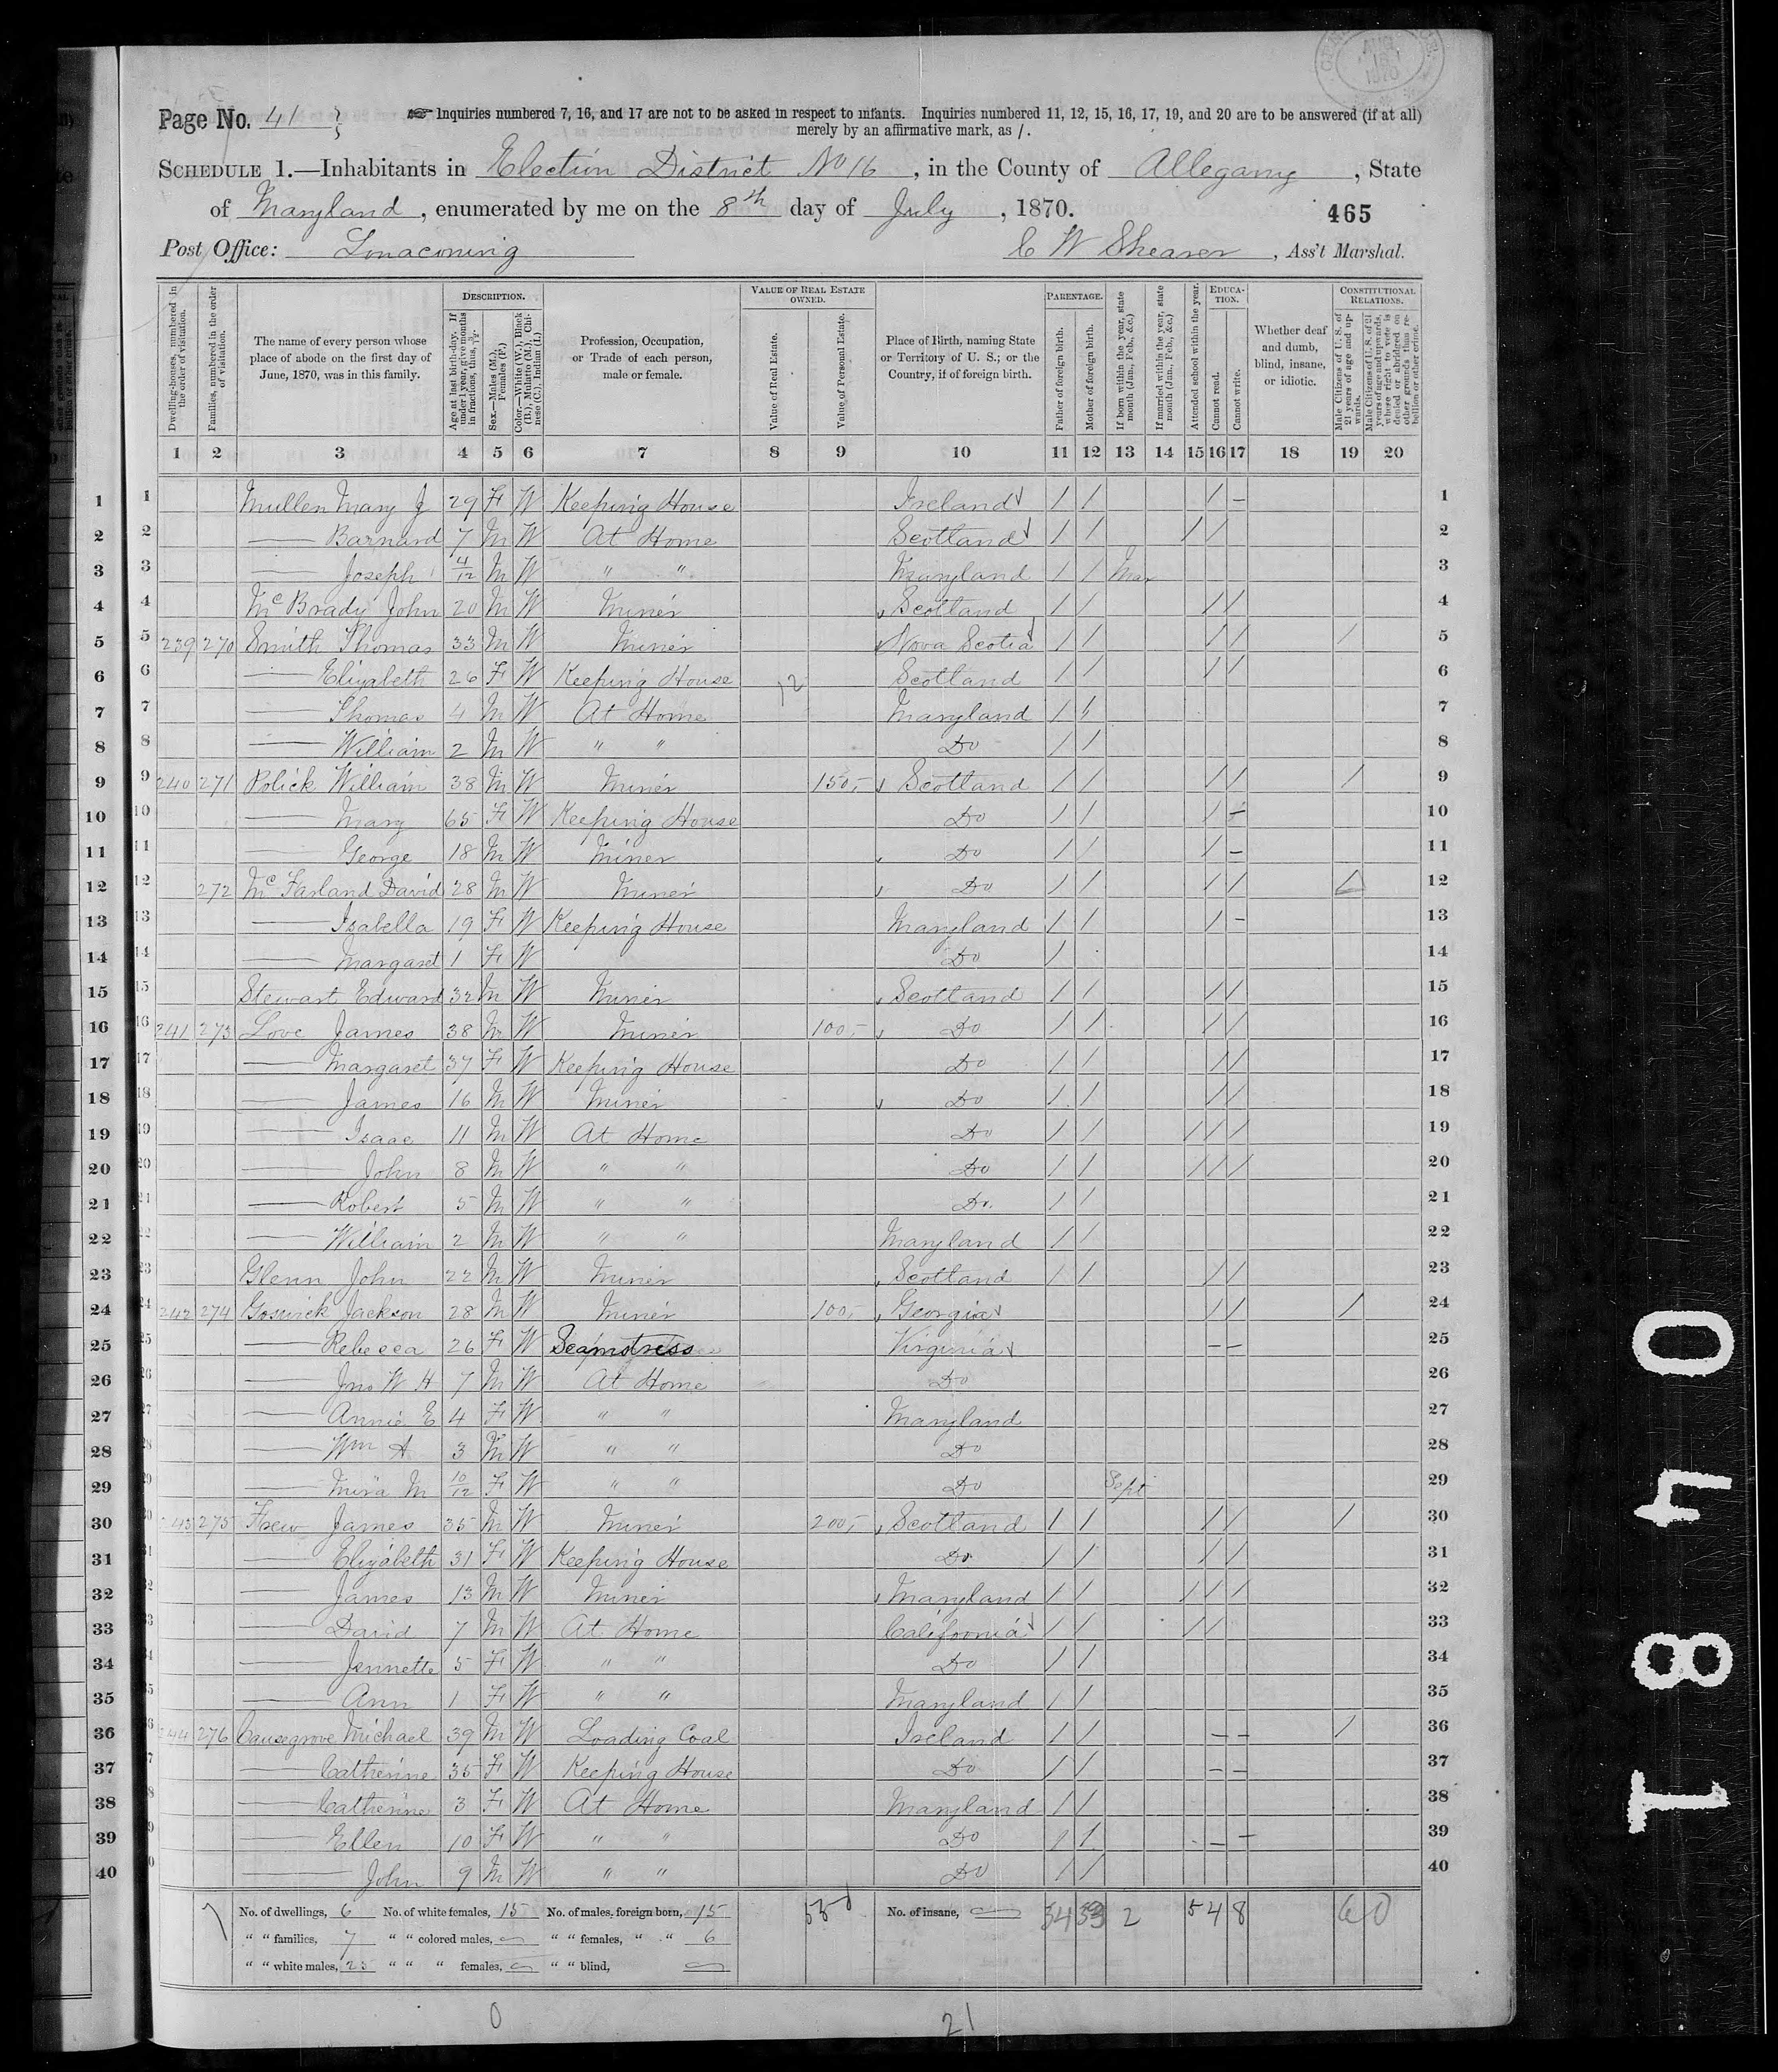 Page No. 41
Inquiries numbered 7, 16, and 17 are not to be asked in respect to infants. Inquiries numbered 11, 12, 15, 16, 17, 19, and 20 are to be answered (if at all)
merely by an affirmative mark, as /.
SCHEDULE 1.—Inhabitants in Election District No 16, in the County of Allegany, State
of Maryland, enumerated by me on the 8th day of July, 1870.
465
Post Office: Lonaconing
C W Shearer, Ass't Marshal.
Dwelling-houses, numbered in the order of visitation.
Families, numbered in the order of visitation.
The name of every person whose place of abode on the first day of June, 1870, was in this family.
DESCRIPTION.
Age at last birth-day. If under 1 year, give months in fractions, thus, 3/12
Sex.—Males (M.), Females (F.)
Color.—White (W.), Black (B.), Mulatto (M.), Chinese (C.), Indian (I.)
Profession, Occupation, or Trade of each person, male or female.
VALUE OF REAL ESTATE OWNED.
Value of Real Estate.
Value of Personal Estate.
Place of Birth, naming State or Territory of U. S.; or the Country, if of foreign birth.
PARENTAGE.
Father of foreign birth.
Mother of foreign birth.
If born within the year, state month (Jan., Feb., &c.)
If married within the year, state month (Jan., Feb., &c.)
Attended school within the year.
EDUCATION.
Cannot read.
Cannot write.
Whether deaf and dumb, blind, insane, or idiotic.
CONSTITUTIONAL RELATIONS.
Male Citizens of U. S. of 21 years of age and upwards.
Male Citizens of U. S. of 21 years of age and upwards, where right to vote is denied or abridged on other grounds than rebellion or other crime.
1 2 3 4 5 6 7 8 9 10 11 12 13 14 15 16 17 18 19 20
1 Mullen Mary J 29 F W Keeping House Ireland / / / - 1
2 — Barnard 7 M W At Home Scotland / / / / 2
3 — Joseph 4/12 M W " " Maryland / / Mar 3
4 McBrady John 20 M W Miner Scotland / / / / 4
5 239 270 Smith Thomas 33 M W Miner Nova Scotia / / / / / 5
6 — Elizabeth 26 F W Keeping House Scotland / / / / 6
7 — Thomas 4 M W At Home Maryland / / 7
8 — William 2 M W " " Do / / 8
9 240 271 Polick William 38 M W Miner 150,- Scotland / / / / / 9
10 — Mary 65 F W Keeping House Do / / / - 10
11 — George 18 M W Miner Do / / / - 11
12 272 McFarland David 28 M W Miner Do / / / / 12
13 — Isabella 19 F W Keeping House Maryland / / / - 13
14 — Margaret 1 F W Do / 14
15 Stewart Edward 32 M W Miner Scotland / / / / 15
16 241 273 Love James 38 M W Miner 100,- Do / / / / 16
17 — Margaret 37 F W Keeping House Do / / / / 17
18 — James 16 M W Miner Do / / / / 18
19 — Isaac 11 M W At Home Do / / / / / 19
20 — John 8 M W " " Do / / / / / 20
21 — Robert 5 M W " " Do / / 21
22 — William 2 M W " " Maryland / / 22
23 Glenn John 22 M W Miner Scotland / / / / 23
24 242 274 Goswick Jackson 28 M W Miner 100,- Georgia / / / 24
25 — Rebecca 26 F W Seamstress Virginia - - 25
26 — Jno W H 7 M W At Home Do 26
27 — Annie E 4 F W " " Maryland 27
28 — Wm A 3 M W " " Do 28
29 — Mira M 10/12 F W " " Do Sept 29
30 243 275 Frew James 35 M W Miner 200,- Scotland / / / / / 30
31 — Elizabeth 31 F W Keeping House Do / / / / 31
32 — James 13 M W Miner Maryland / / / / / 32
33 — David 7 M W At Home California / / / / 33
34 — Jennette 5 F W " " Do / / 34
35 — Ann 1 F W " " Maryland / / 35
36 244 276 Causegrove Michael 39 M W Loading Coal Ireland / / - - / 36
37 — Catherine 35 F W Keeping House Do / / - - 37
38 — Catherine 3 F W At Home Maryland / / 38
39 — Ellen 10 F W " " Do / / - - 39
40 — John 9 M W " " Do / / 40
No. of dwellings, 6 No. of white females, 15 No. of males, foreign born, 15 No. of insane, 34 33 2 5 4 8 6 0
" " families, 7 " " colored males, " " females, " " 6
" " white males, 25 " " " females, " " blind,
0 21
18404